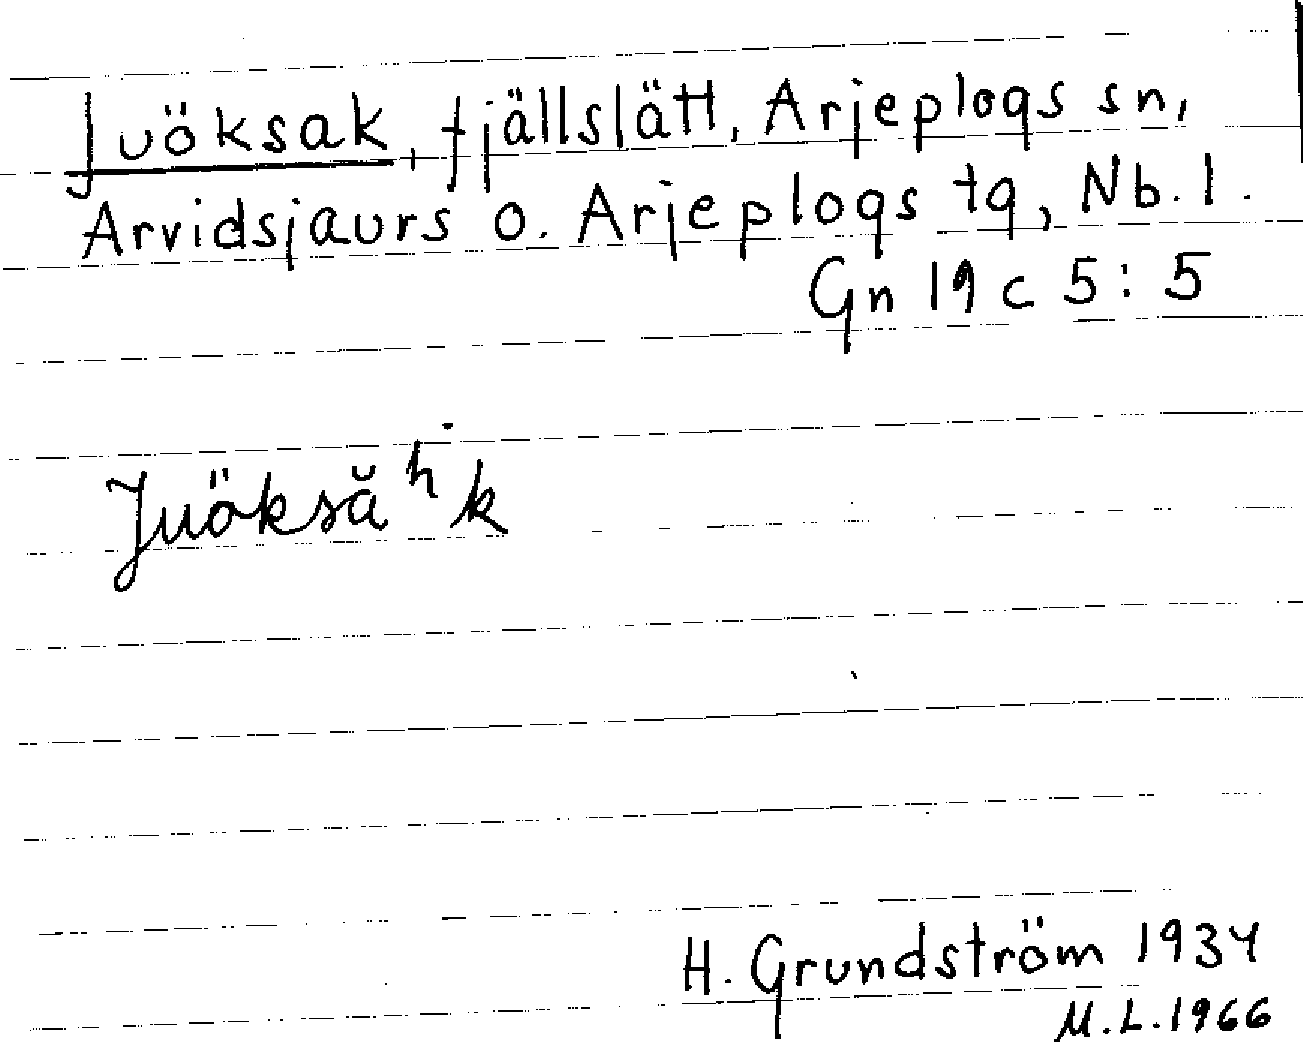 Juöksak, fjällslätt, Arjeplogs sn,
Arvidsjaurs o. Arjeplogs tg, Nb. l.
Gn 19 c 5:5
Juöksăʰk
H. Grundström 1934
M.L. 1966